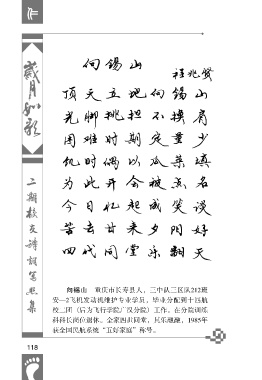 岁月如歌
二期校友诗词写照集
向锡山
程兆贤
顶天立地向锡山
光脚挑担不换肩
困难时期定量少
饥时偶以瓜菜填
为此开会被点名
今日忆起成笑谈
苦去甘来夕阳好
四代同堂乐翻天
向锡山 重庆市长寿县人，三中队三区队212班
安—2飞机发动机维护专业学员，毕业分配到十四航
校二团（后为飞行学院广汉分院）工作。在分院训练
科科长岗位退休。全家四世同堂，其乐融融，1985年
获全国民航系统“五好家庭”称号。
118